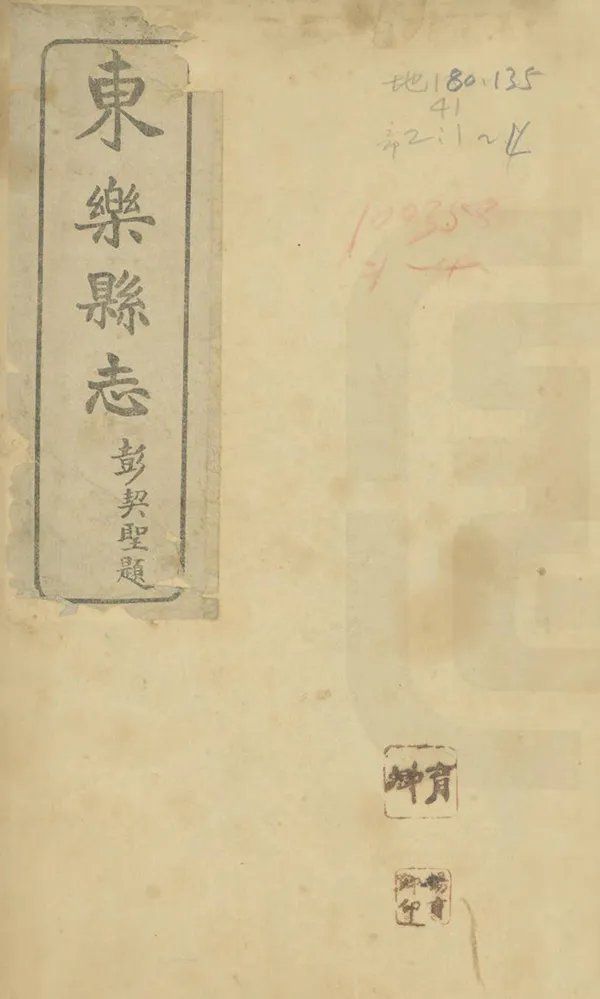 東樂縣志
彭契聖題
地180.135
41
部2:1~4
100358
育卿
楊育
卿印